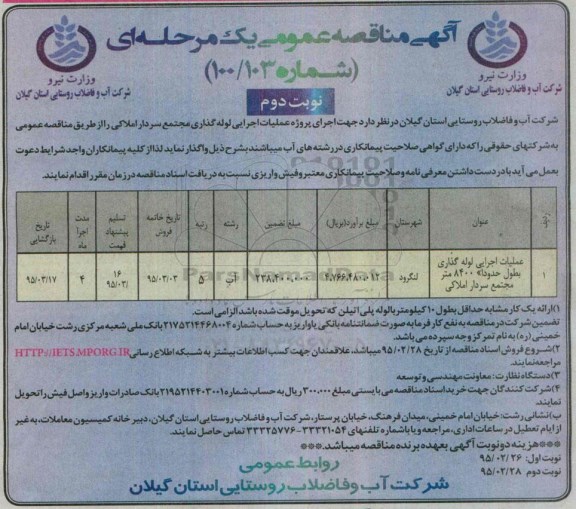 آگهی مناقصه عمومی یک مرحله‌ای
(شماره ۱۰۰/۱۰۳)
نوبت دوم
وزارت نیرو
شرکت آب و فاضلاب روستایی استان گیلان
وزارت نیرو
شرکت آب و فاضلاب روستایی استان گیلان
شرکت آب و فاضلاب روستایی استان گیلان در نظر دارد جهت اجرای پروژه عملیات اجرایی لوله گذاری مجتمع سردار املاکی را از طریق مناقصه عمومی
به شرکتهای حقوقی را که دارای گواهی صلاحیت پیمانکاری در رشته های آب میباشند بشرح ذیل واگذار نماید لذا از کلیه پیمانکاران واجد شرایط دعوت
بعمل می آید با در دست داشتن معرفی نامه و صلاحیت پیمانکاری معتبر و فیش واریزی نسبت به دریافت اسناد مناقصه در زمان مقرر اقدام نمایند.
ردیف عنوان شهرستان مبلغ برآورد(بریال) مبلغ تضمین رشته رتبه تاریخ خاتمه فروش تسلیم پیشنهاد قیمت مدت اجرا ماه تاریخ بازگشایی
۱ عملیات اجرایی لوله گذاری بطول حدوداً ۸۴۰۰ متر مجتمع سردار املاکی لنگرود ۴،۷۶۶،۴۸۰،۰۱۲ ۲۳۸،۴۰۰،۰۰۰ آب ۵ ۹۵/۰۳/۰۳ ۹۵/۰۳/۱۶ ۴ ۹۵/۰۳/۱۷
۱)ارائه یک کار مشابه حداقل بطول ۱۰ کیلومتر با لوله پلی اتیلن که تحویل موقت شده باشد الزامی است.
تضمین شرکت در مناقصه به نفع کارفرما به صورت ضمانتنامه بانکی یا واریز به حساب شماره ۲۱۷۵۲۱۴۴۶۸۰۰۴ بانک ملی شعبه مرکزی رشت خیابان امام
خمینی (ره) به نام تمرکز وجه سپرده می باشد.
۲)شروع فروش اسناد مناقصه از تاریخ ۹۵/۰۲/۲۸ میباشد. علاقمندان جهت کسب اطلاعات بیشتر به شبکه اطلاع رسانی HTTP://IETS.MPORG.IR
مراجعه نمایند.
۳)دستگاه نظارت: معاونت مهندسی و توسعه
۴)شرکت کنندگان جهت خرید اسناد مناقصه می بایستی مبلغ ۳۰۰،۰۰۰ ریال به حساب شماره ۲۱۹۵۲۱۴۴۰۳۰۰۱ بانک صادرات واریز و اصل فیش را تحویل
نمایند.
ب)نشانی: رشت: خیابان امام خمینی، میدان فرهنگ، خیابان پرستار، شرکت آب و فاضلاب روستایی استان گیلان، دبیر خانه کمیسیون معاملات، به غیر
از ایام تعطیل در ساعات اداری، مراجعه و یا با شماره تلفنهای ۳۳۳۲۱۰۵۴-۳۳۳۲۵۷۷۶ تماس حاصل نمایند.
***هزینه دو نوبت آگهی بعهده برنده مناقصه میباشد.***
نوبت اول: ۹۵/۰۲/۲۶
نوبت دوم: ۹۵/۰۲/۲۸
روابط عمومی
شرکت آب و فاضلاب روستایی استان گیلان